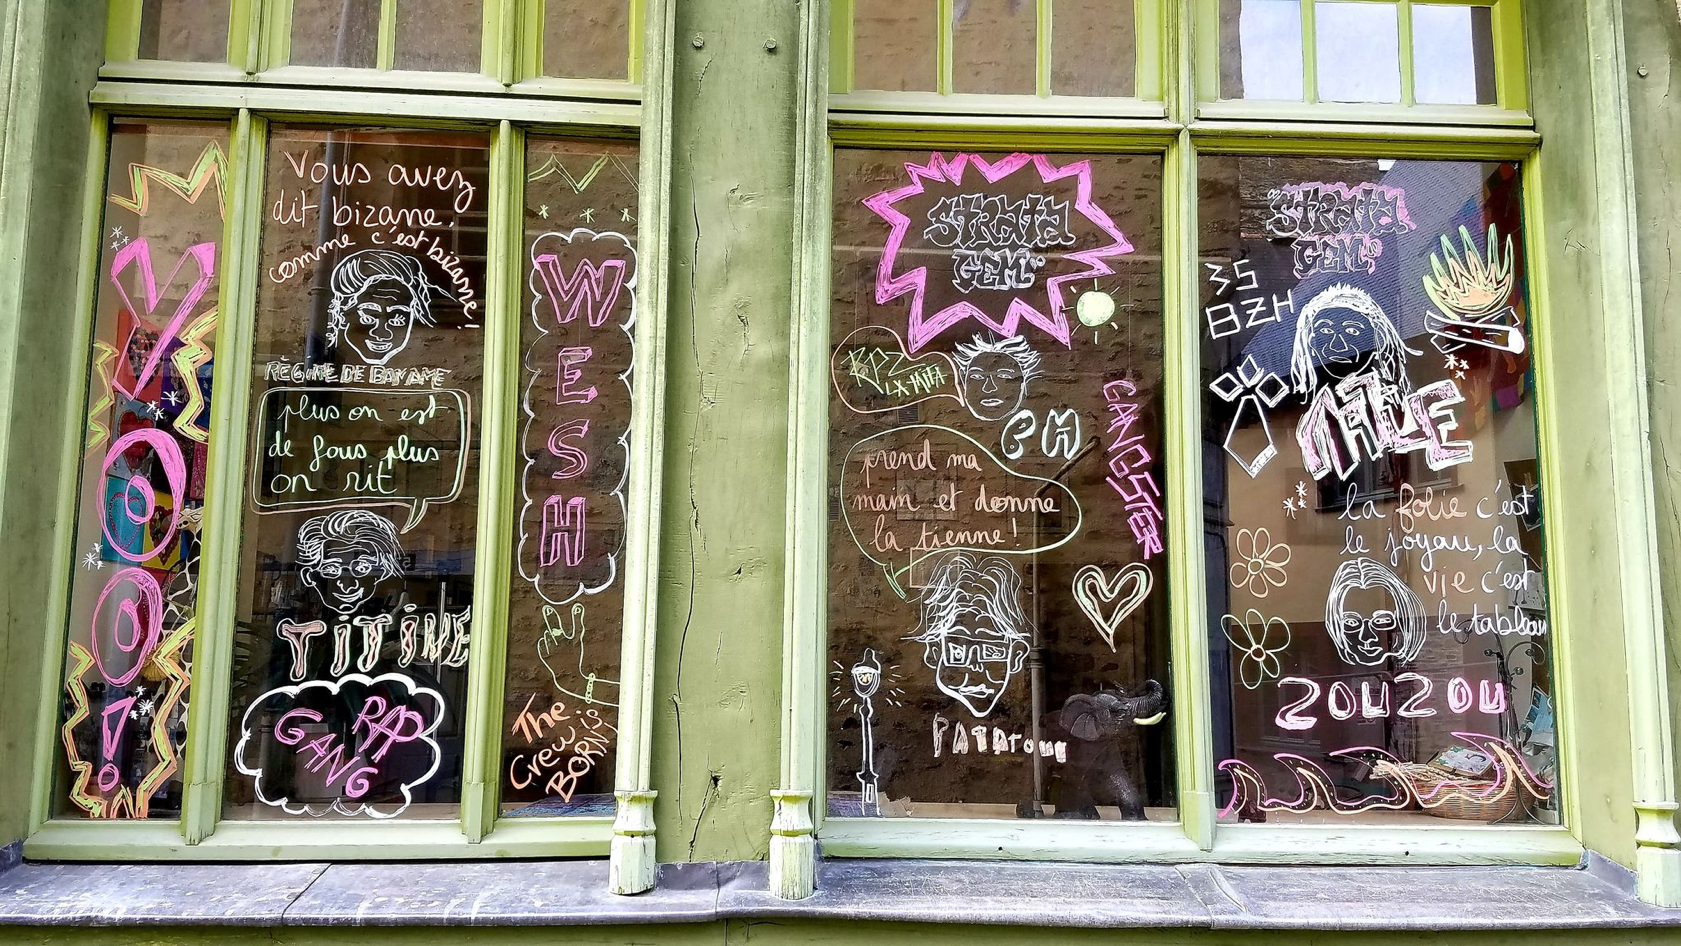 YOOO!
Vous avez
dit bizarre,
comme c'est bizarre!
RÉGIME DE BANANE
plus on est
de fous plus
on rit
TITINE
RAP
GANG
WESH
The
Crew is
BORN
STRATA
GEM
RPZ
LA HAIFA
PH
GANGSTER
prend ma
main et donne
la tienne!
PATATOUU
STRATA
GEM
35
BZH
la folie c'est
le joyau, la
vie c'est
le tableau
ZOUZOU